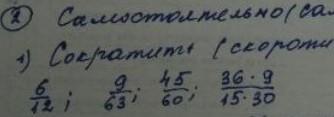 ② Самостоятельно (са
1) Сократить (скороти
6/12; 9/63; 45/60; 36·9/15·30